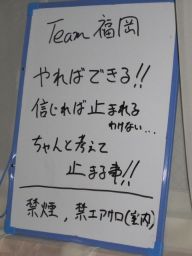 Team 福岡
やればできる!!
信じれば止まれる
わけない...
ちゃんと考えて
止まる車!!
禁煙, 禁エアサロ(室内)